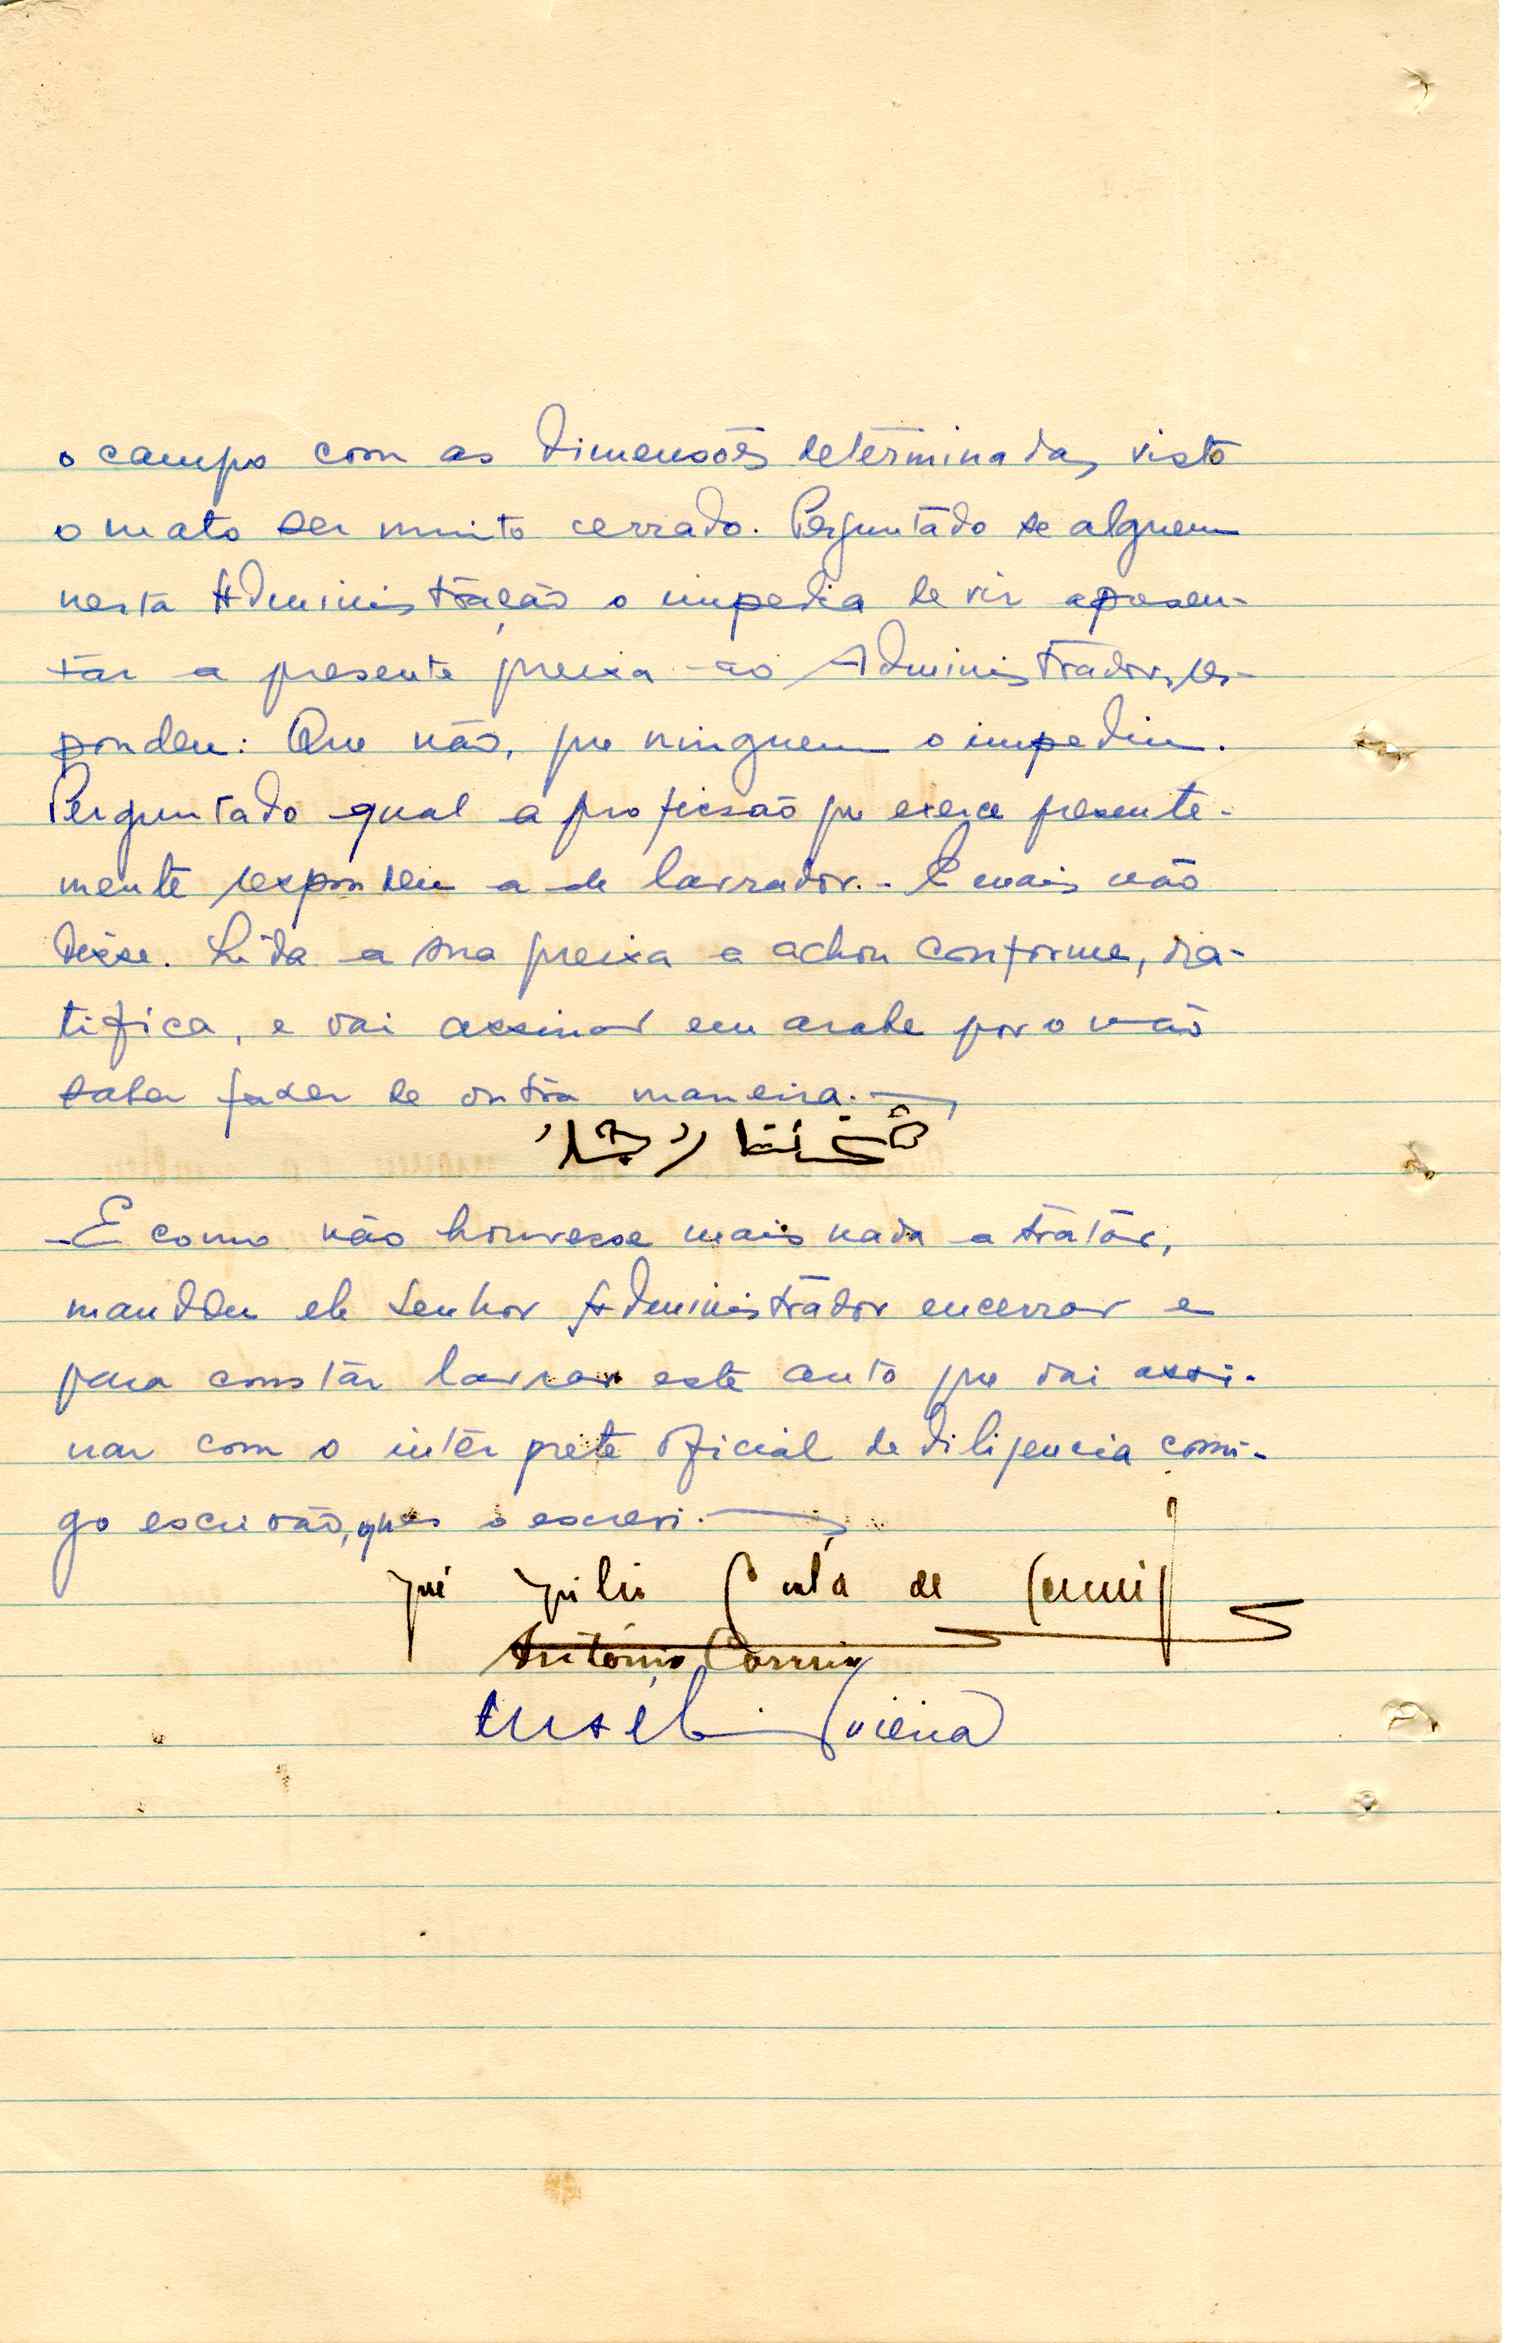 o campo com as dimensões determinadas, visto
o mato ser muito cerrado. Perguntado se alguem
nesta Administração o impedia de vir apresen-
tar a presente queixa ao Administrador, res-
pondeu: Que não, que ninguem o impediu.
Perguntado qual a profissão que exerce presente-
mente respondeu a de lavrador. - E mais não
disse. Lida a sua queixa a achou conforme, ra-
tifica, e vai assinar em arabe por o não
saber fazer de outra maneira. —
- E como não houvesse mais nada a tratar,
mandou ele Senhor Administrador encerrar e
para constar lavrar este auto que vai assi-
nar com o intérprete oficial de diligencia comi-
go escrivão, que o escrevi. —
José Júlio de
António Correia
Eusébio Vieira